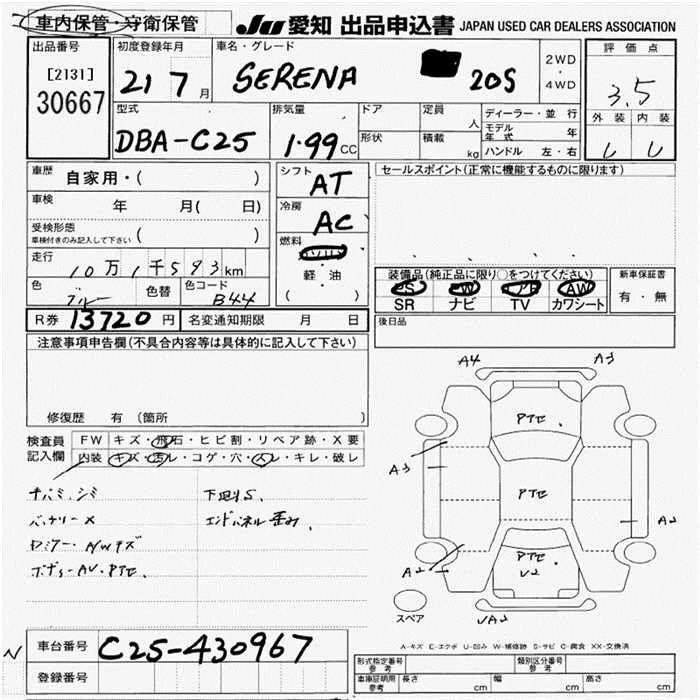 車内保管・守衛保管
JU 愛知 出品申込書 JAPAN USED CAR DEALERS ASSOCIATION
出品番号
[2131]
30667
初度登録年月
21 7月
車名・グレード
SERENA 20S
2WD
・
4WD
評価点
3.5
外装 内装
型式
DBA-C25
排気量
1.99CC
ドア
形状
定員
人
積載
kg
ディーラー・並行
モデル年式 年
ハンドル 左・右
車歴
自家用・( )
車検
年 月( 日)
受検形態
車検付きのみ記入して下さい ( )
走行
10万1千593km
色
ブルー
色替
色コード
B44
シフト
AT
冷房
AC
燃料
軽・油
( )
セールスポイント(正常に機能するものに限ります)
装備品(純正品に限り○をつけてください)
PS PW エアB AW
SR ナビ TV カワシート
新車保証書
有・無
R券 13720円
名変通知期限 月 日
後日品
注意事項申告欄(不具合内容等は具体的に記入して下さい)
修復歴 有 (箇所 )
検査員
記入欄
FW キズ・飛石・ヒビ割・リペア跡・X要
内装 キズ・汚レ・コゲ・穴・スレ・キレ・破レ
バッテリーX
A4
A3
A3
A2
A2
U2
スペア
A-キズ E-エクボ U-凹み W-補修跡 S-サビ C-腐食 XX-交換済
N
車台番号
C25-430967
登録番号
型式指定番号
参考
類別区分番号
参考
車庫証明用
参考
長さ cm
幅 cm
高さ cm